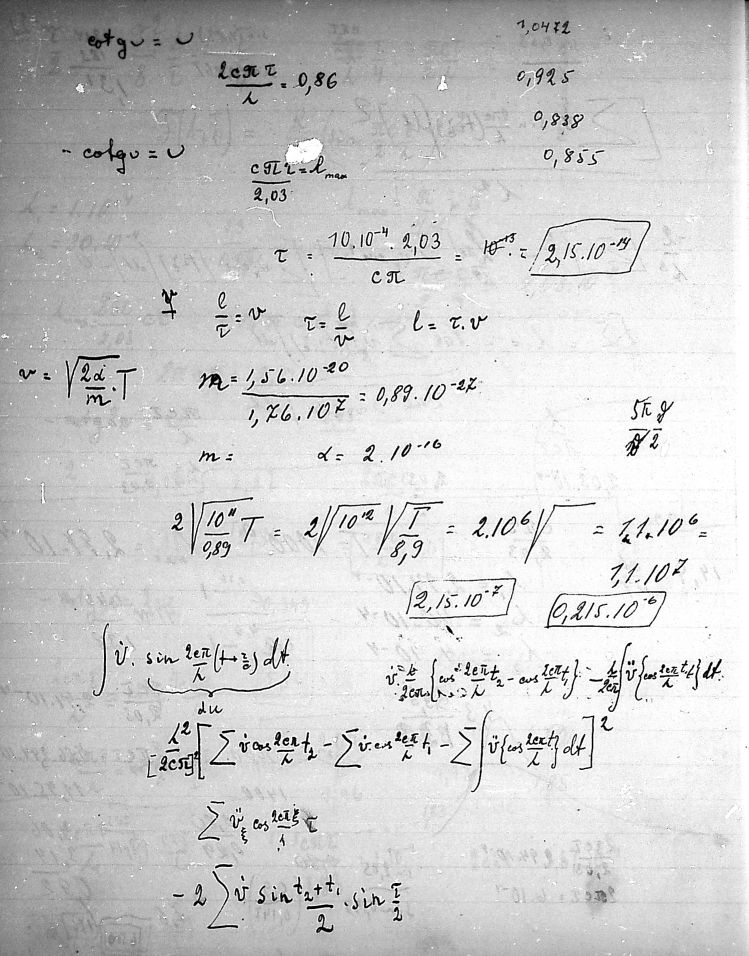 cotg υ = υ
1,0472
2cπτ/λ = 0,86
0,925
0,838
- cotg υ = υ
0,855
cπτ/2,03 = λ max
τ = 10.10⁻⁴ 2,03 / cπ = 10⁻¹³ = 2,15.10⁻¹⁴
l/τ = v τ = l/v l = τ.v
v = √(2α/m . T) m = 1,56.10⁻²⁰ / 1,76.10⁷ = 0,89.10⁻²⁷
m = α = 2.10⁻¹⁶
5π/2
2 √(10¹¹/0,89 T) = 2 √10¹² √(T/8,9) = 2.10⁶ √ = 1,1.10⁶ =
1,1.10⁷
2,15.10⁻⁷ 0,215.10⁻⁶
∫ v̇. sin 2cπ/λ (t + z/c) dt
du
v̇ = λ/2cπ {cos 2cπ/λ t₂ - cos 2cπ/λ t₁} - λ/2cπ ∫ v̈ {cos 2cπ/λ t} dt.
λ²/[2cπ]² [ ∑ v̇ cos 2cπ/λ t₂ - ∑ v̇ cos 2cπ/λ t₁ - ∑ ∫ v̈ {cos 2cπt/λ} dt ]²
∑ v̈ξ cos 2cπξ/λ τ
- 2 ∑ v̇ sin t₂+t₁/2 . sin τ/2